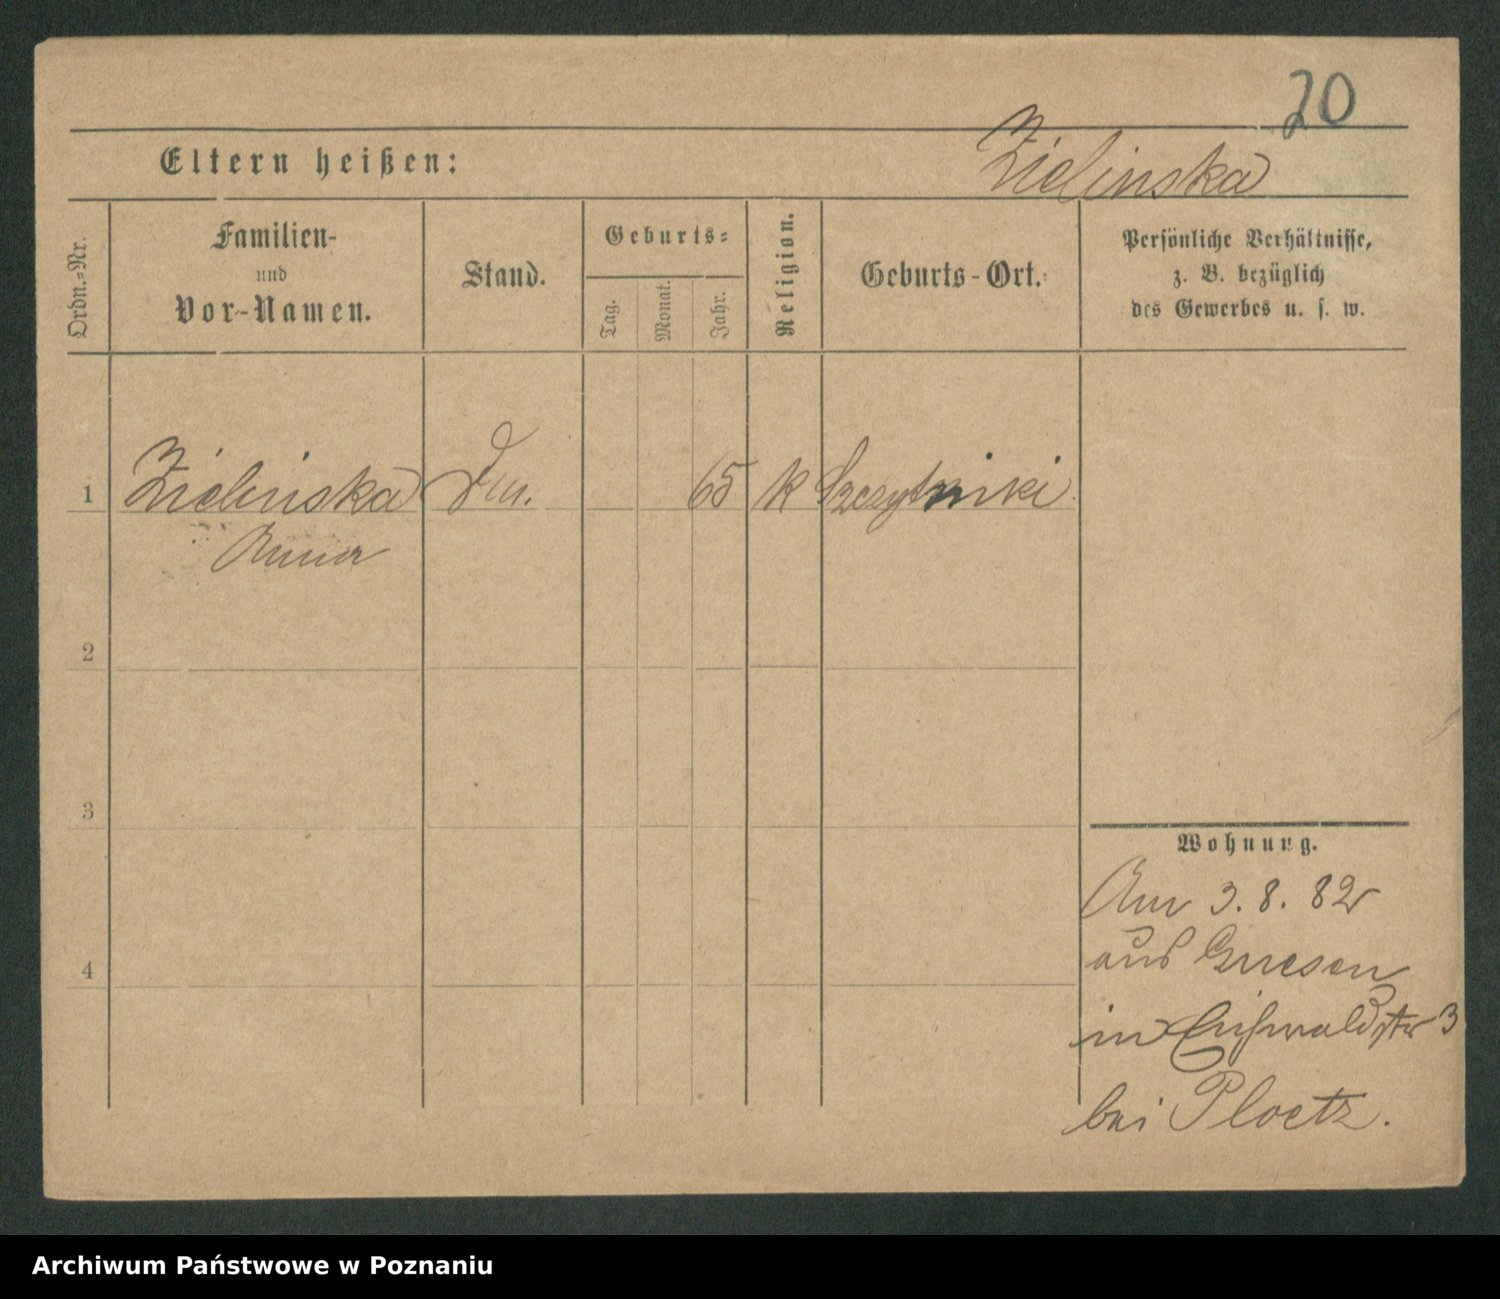 20
Eltern heißen:
Zielinska
Ordn.-Nr.
Familien-
und
Vor-Namen.
Stand.
Geburts-
Tag.
Monat.
Jahr.
Religion.
Geburts-Ort.
Persönliche Verhältnisse,
z. B. bezüglich
des Gewerbes u. s. w.
1 Zielinska 65 K Szczytniki
Anna
2
3
4
Wohnung.
Am 3. 8. 82
aus Gnesen
in Eichwaldstr 3
bei Ploetz.
Archiwum Państwowe w Poznaniu